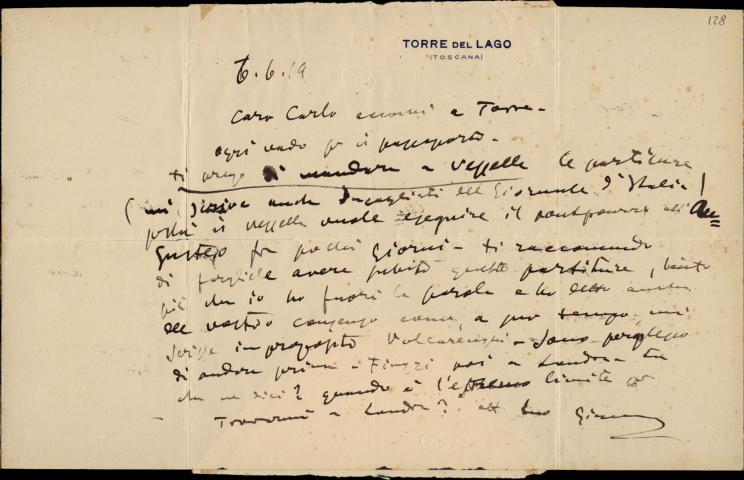 128
TORRE DEL LAGO
(TOSCANA)
6.6.19
Caro Carlo eccomi a Torre -
oggi vado per il passaporto -
ti prego di mandare a Vessella le partiture
(mi scrive anche Incagliati del Giornale d'Italia)
poiché il Vessella vuole eseguire il all'Au=
gusteo fra pochi giorni - ti raccomando
di fargliele avere subito queste partiture, tanto
più che io ho fuori la parola e ho detto anche
del vostro consenso come, a suo tempo, mi
scrisse in proposito Valcarenghi - Sono perplesso
di andare prima a Fiuggi poi a Londra - tu
che ne dici? quando è l'estremo limite per
trovarmi a Londra? aff tuo Giacomo